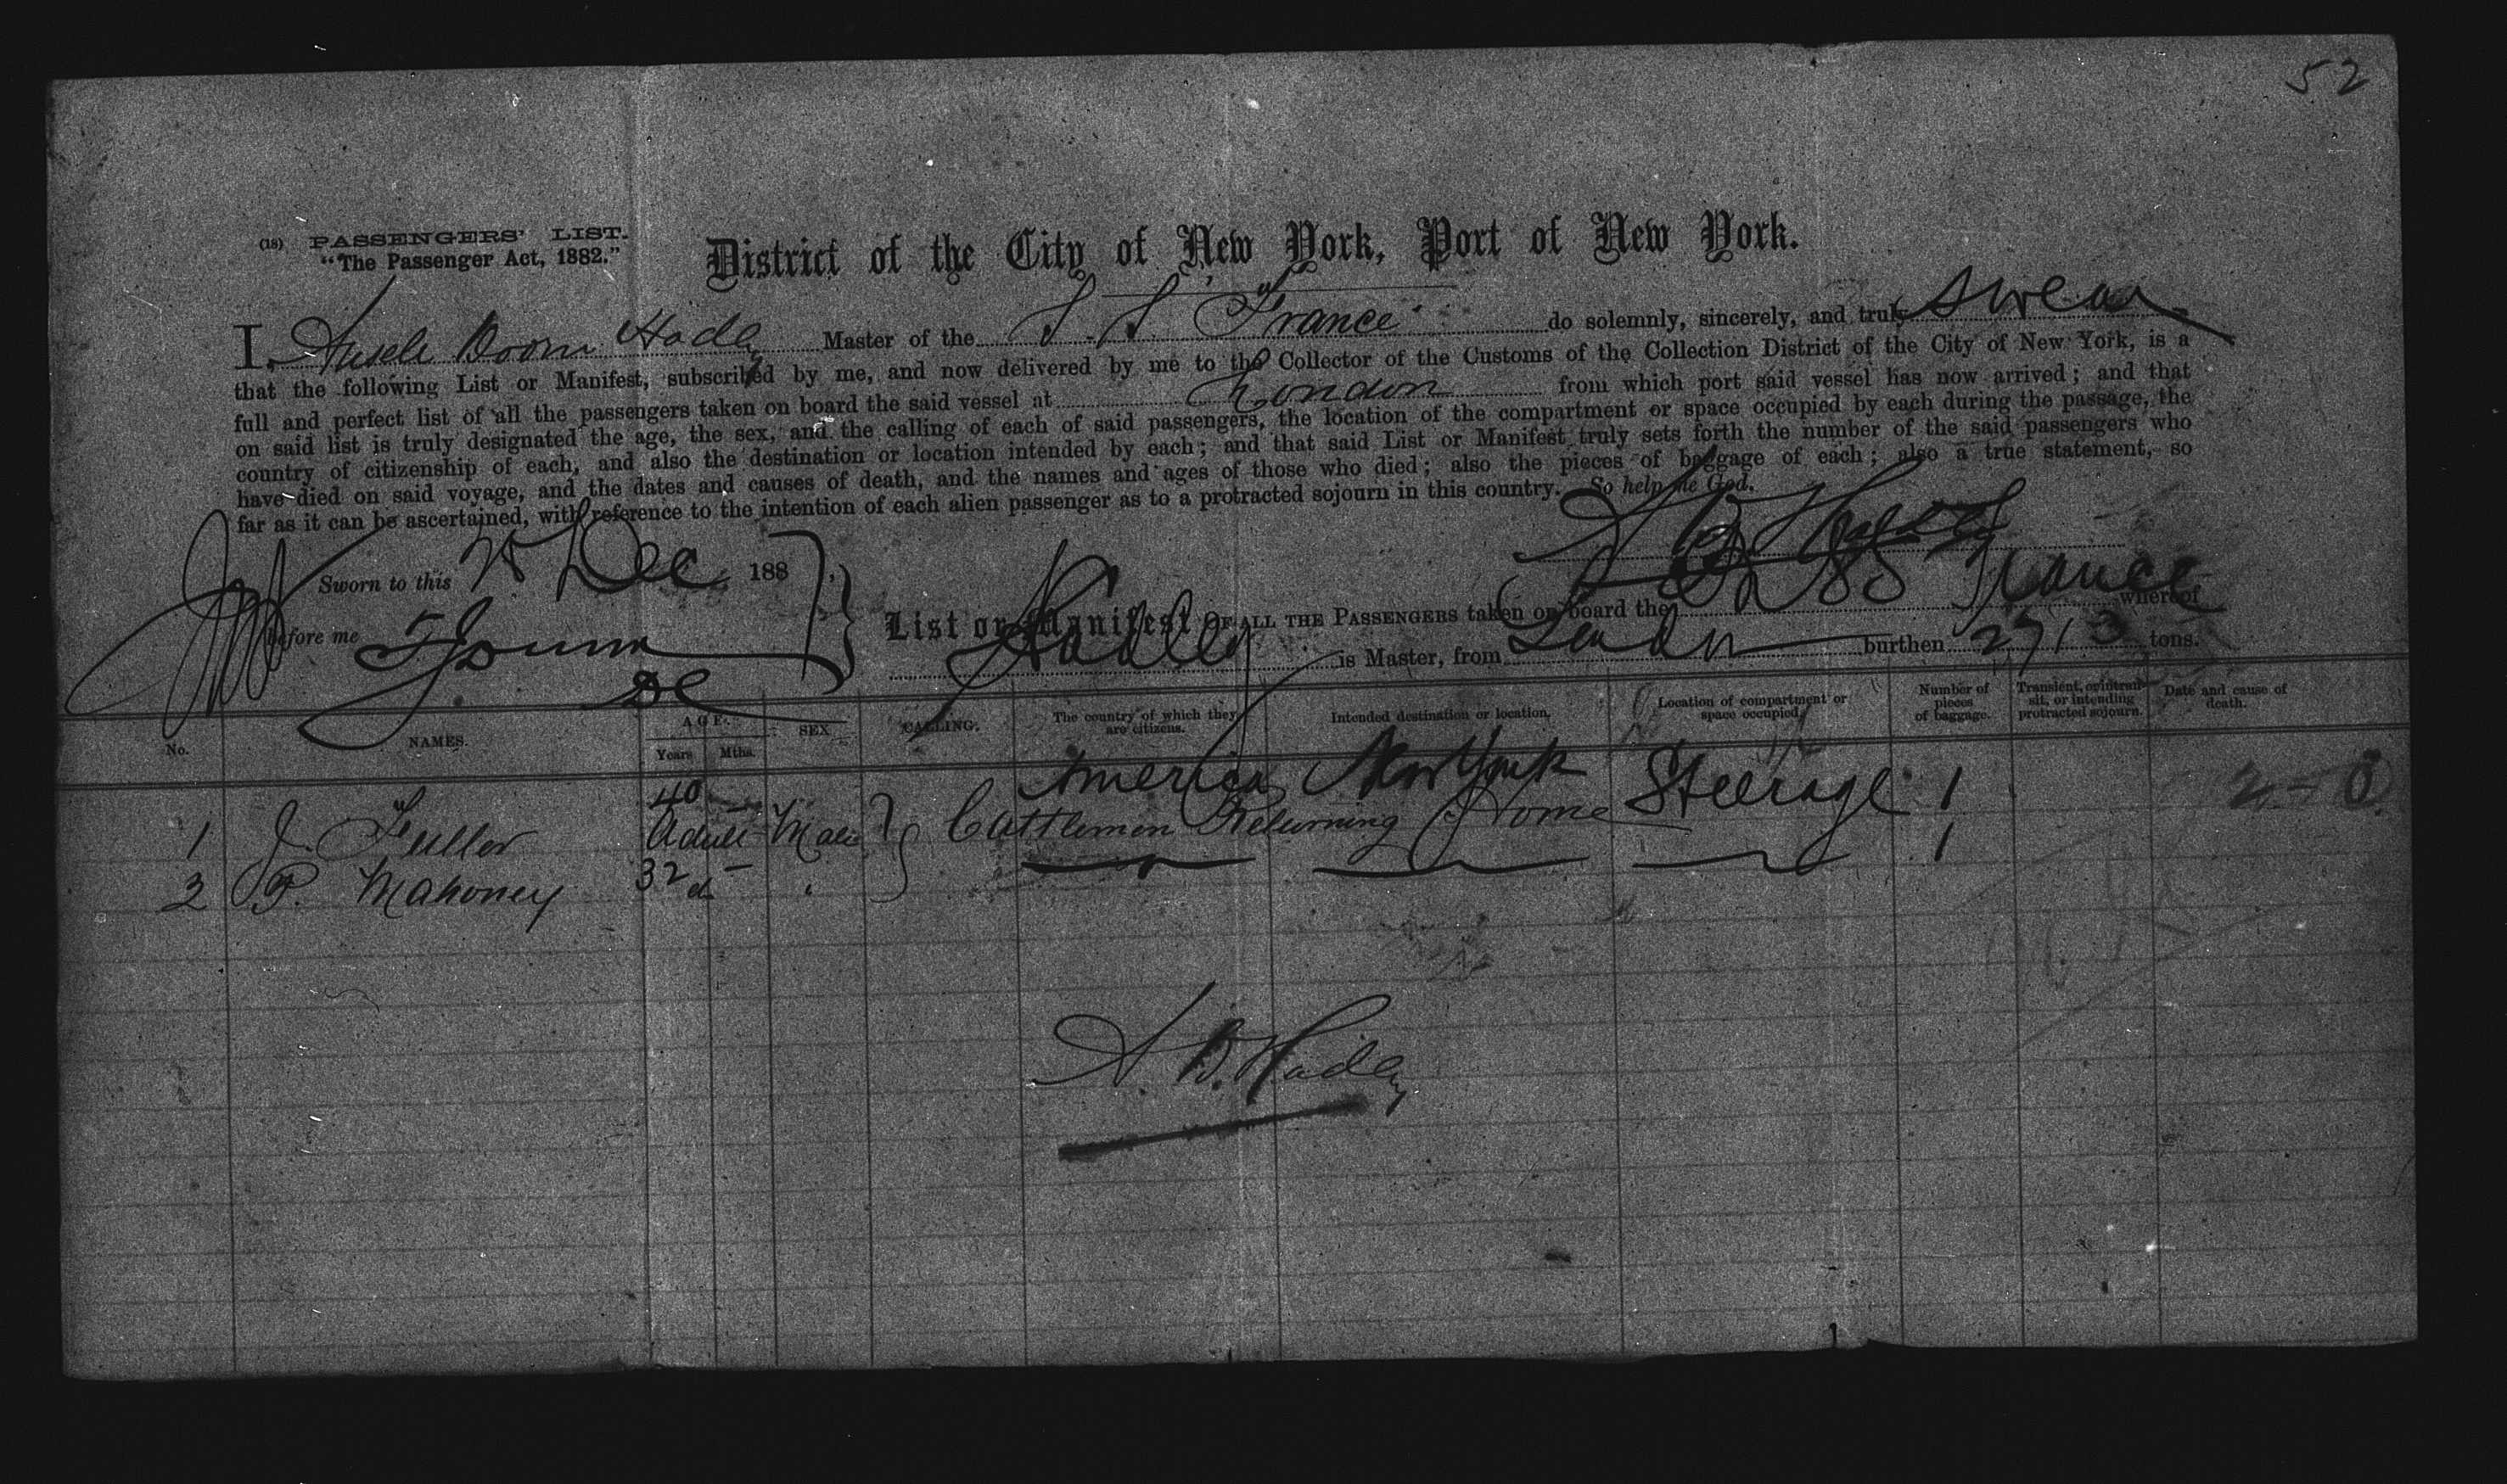 52
(18) PASSENGERS' LIST.
"The Passenger Act, 1882."
District of the City of New York, Port of New York.
I, Boom Hadley Master of the S. S. "France" do solemnly, sincerely, and truly swear
that the following List or Manifest, subscribed by me, and now delivered by me to the Collector of the Customs of the Collection District of the City of New York, is a
full and perfect list of all the passengers taken on board the said vessel at London from which port said vessel has now arrived; and that
on said list is truly designated the age, the sex, and the calling of each of said passengers, the location of the compartment or space occupied by each during the passage, the
country of citizenship of each, and also the destination or location intended by each; and that said List or Manifest truly sets forth the number of the said passengers who
have died on said voyage, and the dates and causes of death, and the names and ages of those who died; also the pieces of baggage of each; also a true statement, so
far as it can be ascertained, with reference to the intention of each alien passenger as to a protracted sojourn in this country. So help me God.
A B Hadley
Sworn to this Dec 188
before me
List or Manifest OF ALL THE PASSENGERS taken on board the SS France whereof
Hadley is Master, from London burthen tons.
No. NAMES. AGE. Years Mths. SEX CALLING. The country of which they are citizens. Intended destination or location. Location of compartment or space occupied. Number of pieces of baggage. Transient, or in transit, or intending protracted sojourn. Date and cause of death.
1 J. Fuller 40 Adult Male Cattlemen Returning Home America New York Steerage 1
2 P. Mahoney 32 do " 1
A. B. Hadley